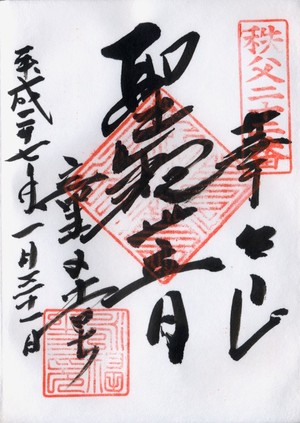 秩父二十二番
奉
聖観世音
童子堂
平成二十七年一月三十一日